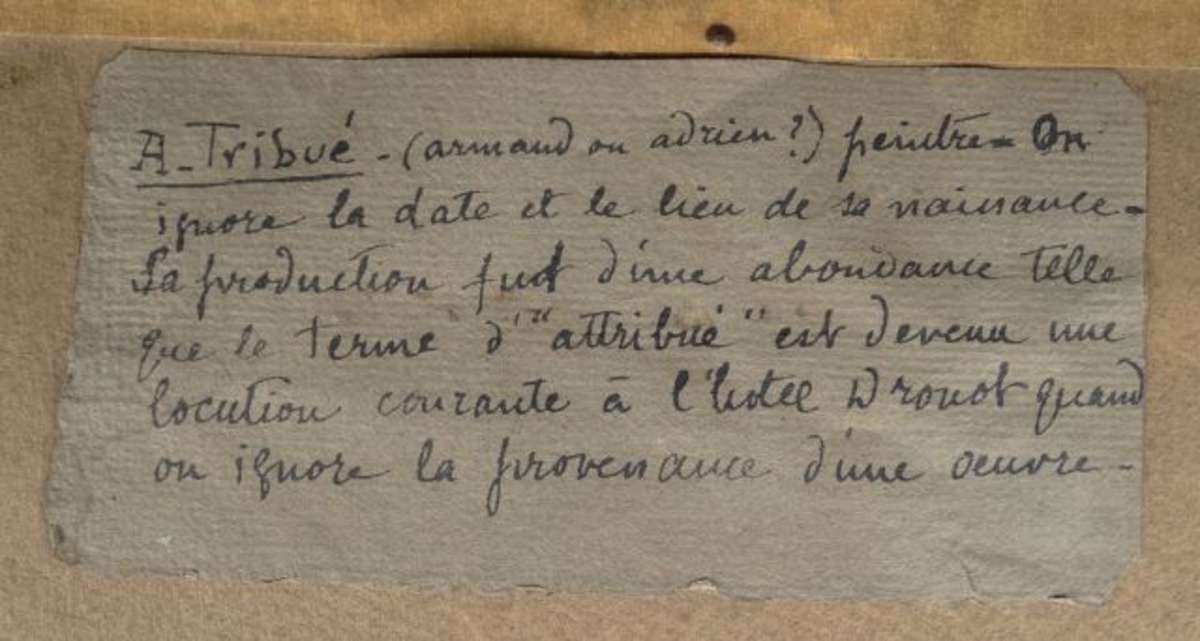 A. Tribué - (armand ou adrien?) peintre - On
ignore la date et le lieu de sa naissance -
Sa production fut d'une abondance telle
que le terme d'"attribué" est devenu une
locution courante à l'hotel Drouot quand
on ignore la provenance d'une oeuvre -